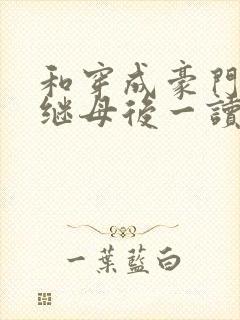 和穿成豪門
继母後一讀
一葉藍白